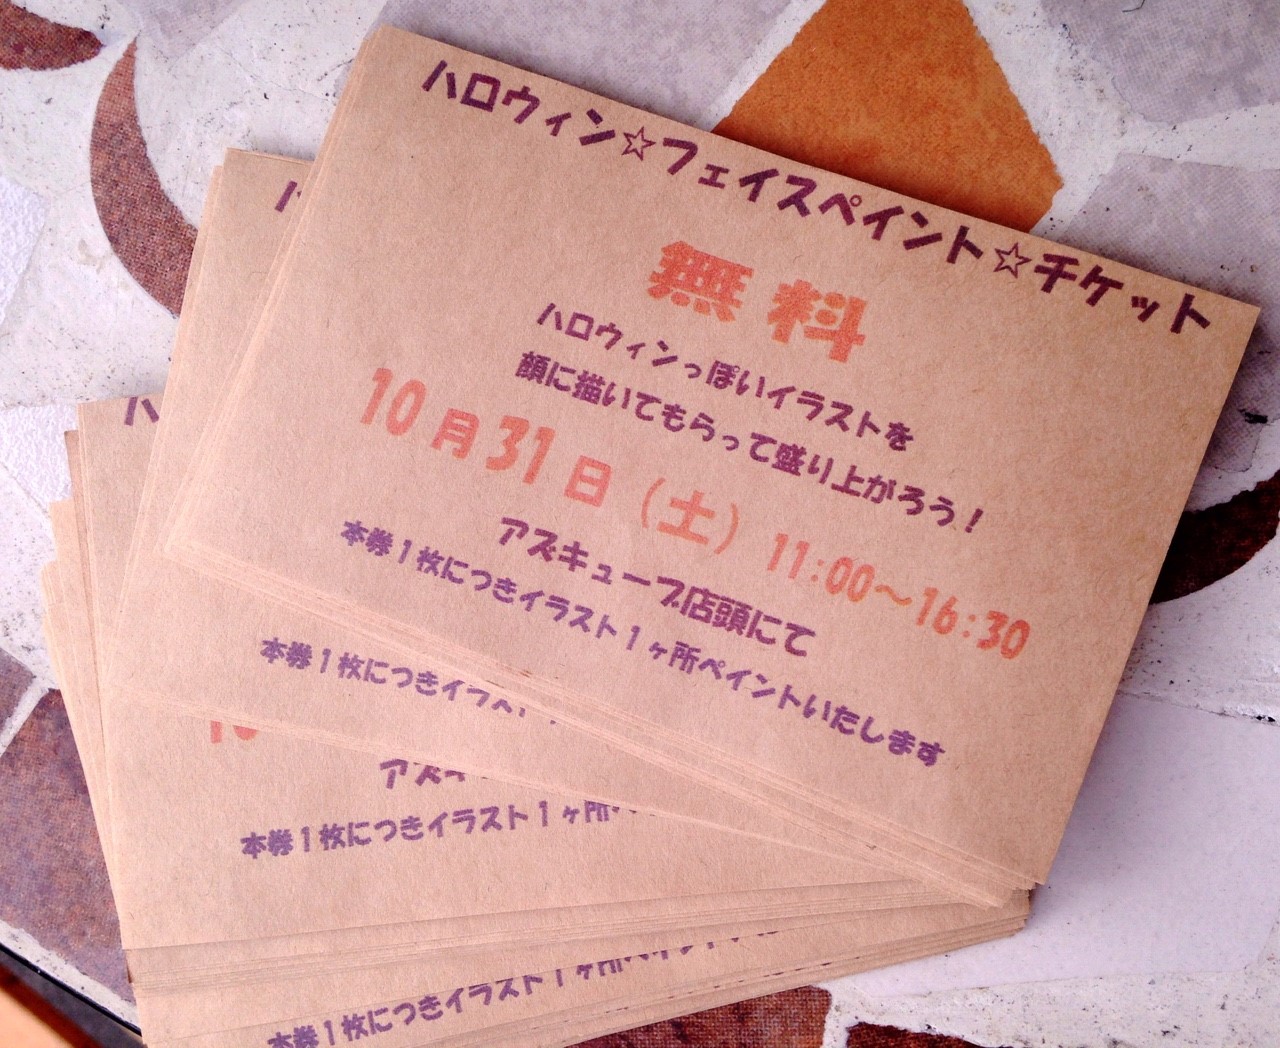 ハロウィン☆フェイスペイント☆チケット
無料
ハロウィンっぽいイラストを
顔に描いてもらって盛り上がろう！
10月31日（土）11:00～16:30
アズキューブ店頭にて
本券1枚につきイラスト1ヶ所ペイントいたします
ハ
本券1枚につきイラスト
ハ
10
アズキ
本券1枚につきイラスト1ヶ所
本券1枚につきイラスト1ヶ所ペイント